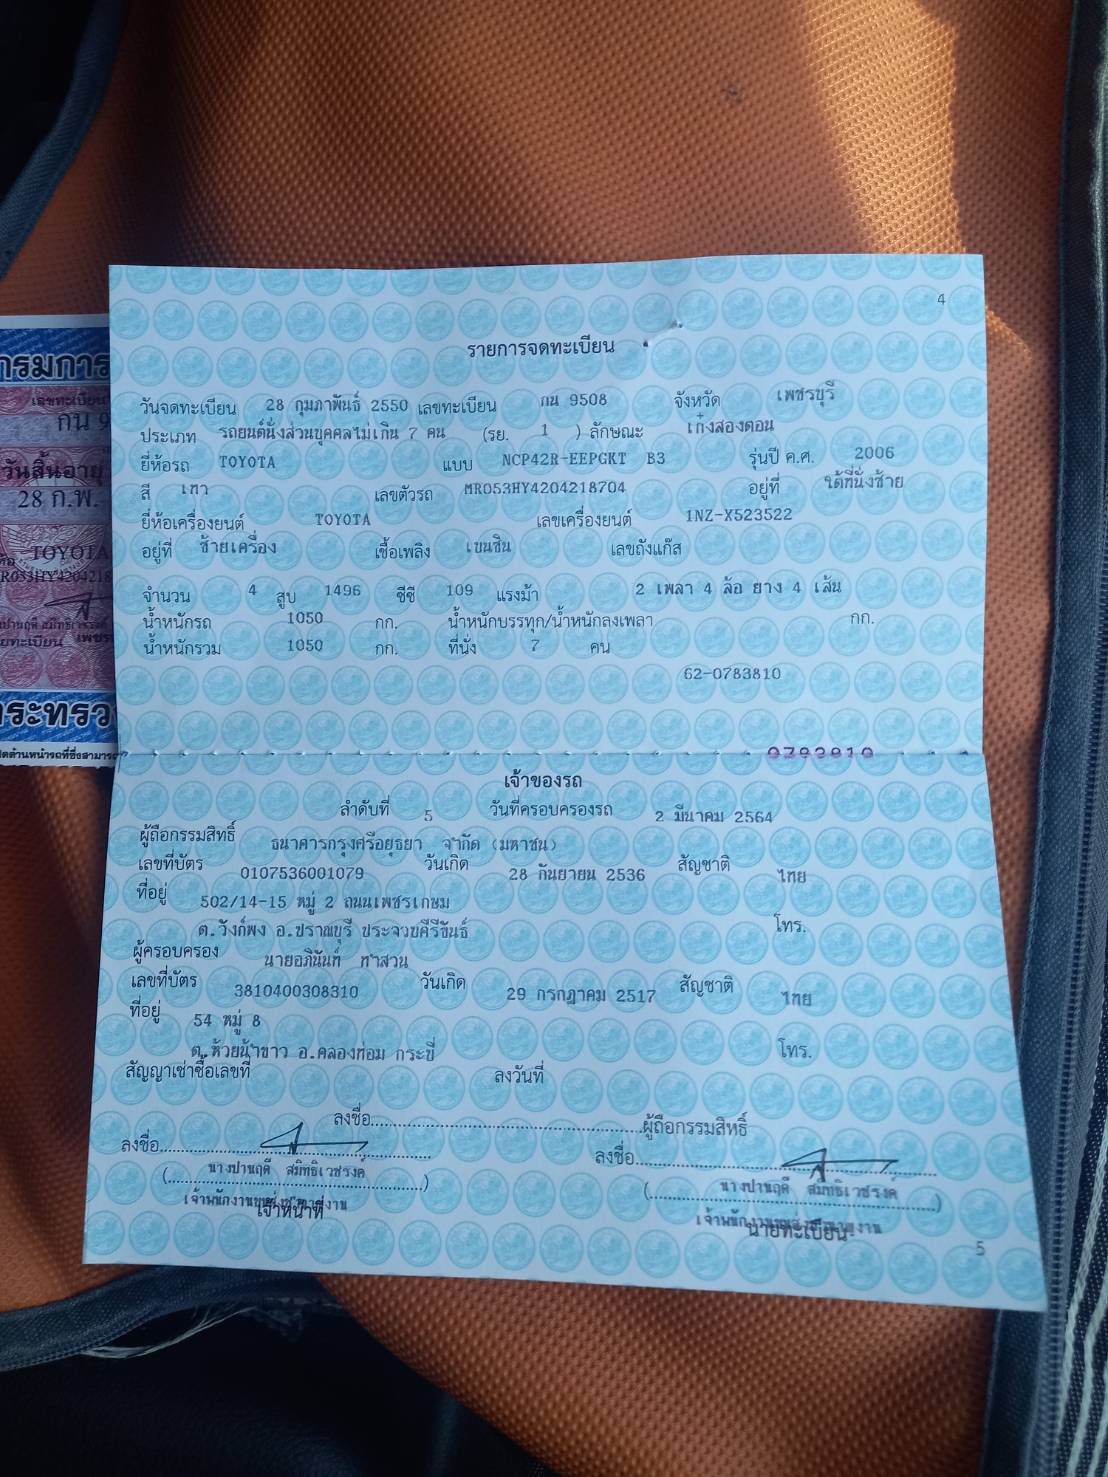 4
รายการจดทะเบียน
วันจดทะเบียน 28 กุมภาพันธ์ 2550 เลขทะเบียน กน 9508 จังหวัด เพชรบุรี
ประเภท รถยนต์นั่งส่วนบุคคลไม่เกิน 7 คน (รย. 1 ) ลักษณะ เก๋งสองตอน
ยี่ห้อรถ TOYOTA แบบ NCP42R-EEPGKT B3 รุ่นปี ค.ศ. 2006
สี เทา เลขตัวรถ MR053HY4204218704 อยู่ที่ ใต้ที่นั่งซ้าย
ยี่ห้อเครื่องยนต์ TOYOTA เลขเครื่องยนต์ 1NZ-X523522
อยู่ที่ ซ้ายเครื่อง เชื้อเพลิง เบนซิน เลขถังแก๊ส
จำนวน 4 สูบ 1496 ซีซี 109 แรงม้า 2 เพลา 4 ล้อ ยาง 4 เส้น
น้ำหนักรถ 1050 กก. น้ำหนักบรรทุก/น้ำหนักลงเพลา กก.
น้ำหนักรวม 1050 กก. ที่นั่ง 7 คน
62-0783810
เจ้าของรถ
ลำดับที่ 5 วันที่ครอบครองรถ 2 มีนาคม 2564
ผู้ถือกรรมสิทธิ์ ธนาคารกรุงศรีอยุธยา จำกัด (มหาชน)
เลขที่บัตร 0107536001079 วันเกิด 28 กันยายน 2536 สัญชาติ ไทย
ที่อยู่ 502/14-15 หมู่ 2 ถนนเพชรเกษม
ต.วังก์พง อ.ปราณบุรี ประจวบคีรีขันธ์ โทร.
ผู้ครอบครอง นายอภินันท์ ทาสวน
เลขที่บัตร 3810400308310 วันเกิด 29 กรกฎาคม 2517 สัญชาติ ไทย
ที่อยู่ 54 หมู่ 8
ต.ห้วยน้ำขาว อ.คลองท่อม กระบี่ โทร.
สัญญาเช่าซื้อเลขที่ ลงวันที่
ลงชื่อ ผู้ถือกรรมสิทธิ์
ลงชื่อ ลงชื่อ
(นางปานฤดี สมิทธิเวชรงค์) (นางปานฤดี สมิทธิเวชรงค์)
เจ้าหน้าที่ นายทะเบียน
5
กรมการ
เลขทะเบียน
กน 9
วันสิ้นอายุ
28 ก.พ.
TOYOTA
กระทรว